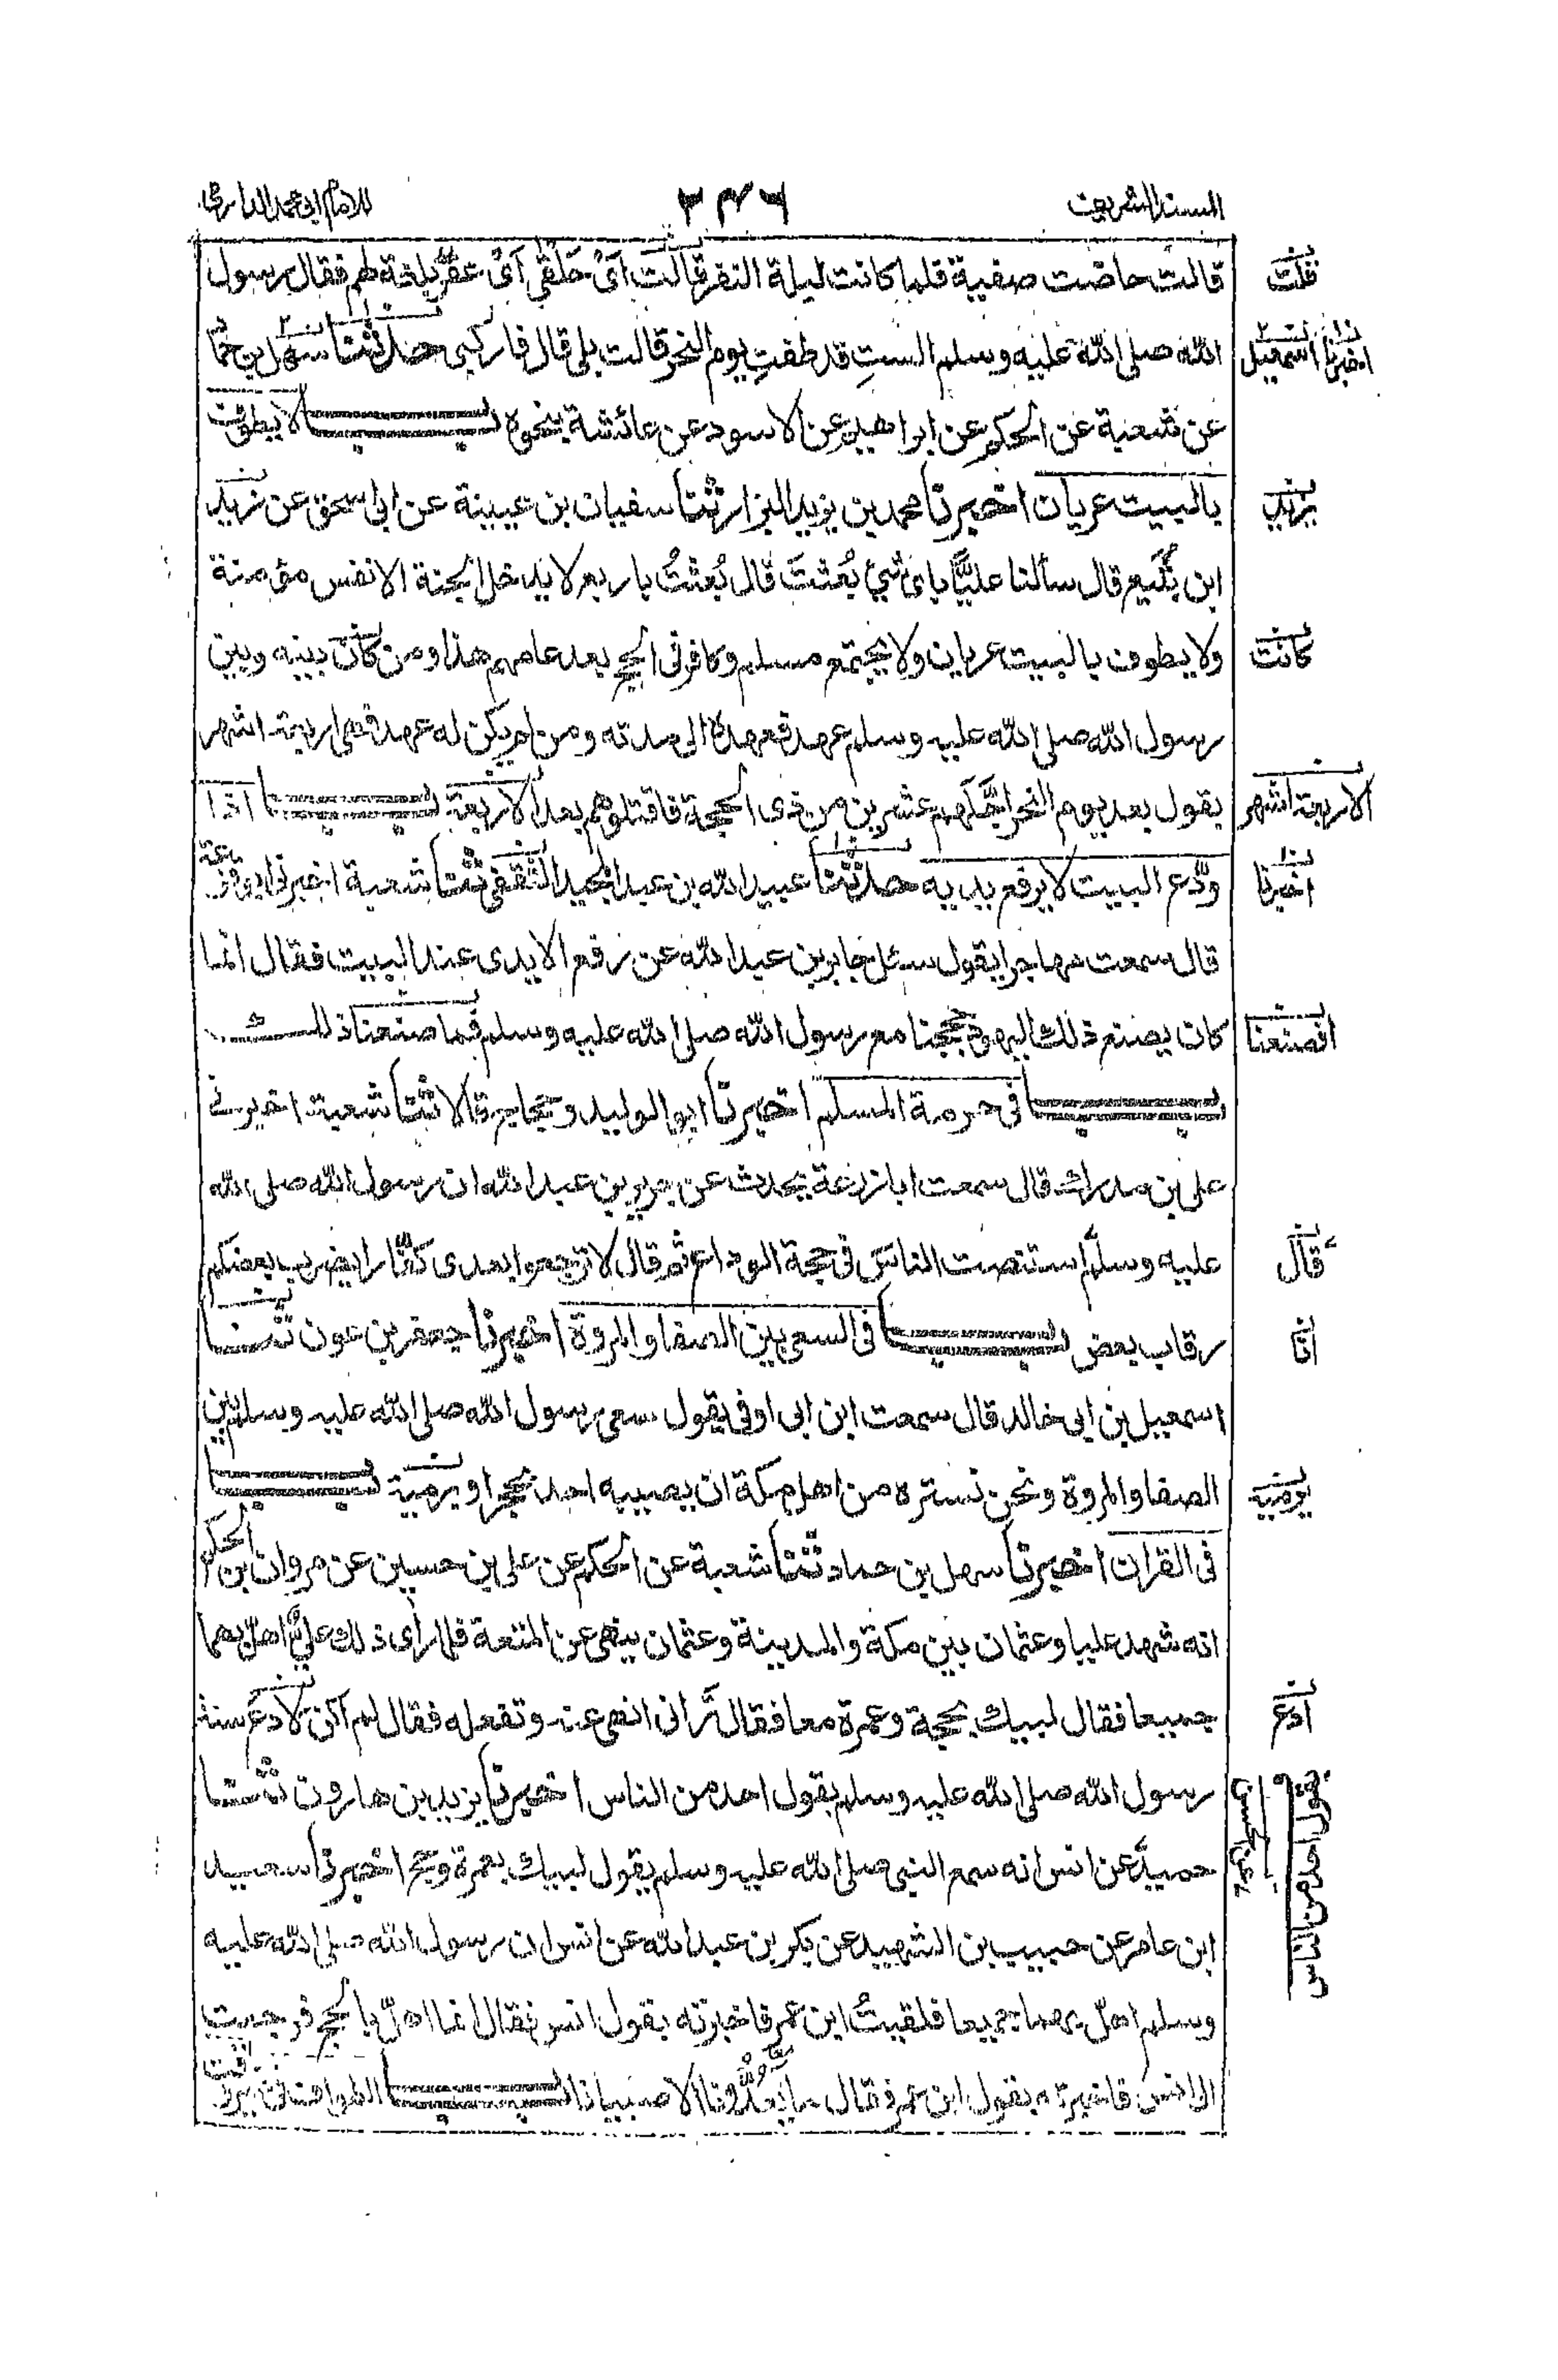 المسند الشريف
٢٤٦
للامام ابي محمد الدارمي
قالت حاضت صفية فلما كانت ليلة النفر قالت اَىْ حَلْقٰى اَىْ عَقْرٰى بلغة لهم فقال رسول
الله صلى الله عليه وسلم الستِ قد طفتِ يوم النحر قالت بلى قال فاركبى حدثنا سهل بن حماد
عن شعبة عن الحكم عن ابراهيم عن الاسود عن عائشة بنحوه باب لا يطوف
بالبيت عريان اخبرنا محمد بن يزيد البزار ثنا سفيان بن عيينة عن ابى اسحق عن زيد
ابن يُثَيع قال سألنا عليًّا باىّ شئ بُعثتَ قال بُعثتُ باربع لا يدخل الجنة الا نفس مؤمنة
ولا يطوف بالبيت عريان ولا يجتمع مسلم وكافر فى الحج بعد عامهم هذا ومن كان بينه وبين
رسول الله صلى الله عليه وسلم عهد فعهده الى مدته ومن لم يكن له عهد فهى اربعة اشهر
يقول بعد يوم النحر اَجَّلَهم عشرين من ذى الحجة فاقتلوهم بعد الاربعة باب اذا
ودّع البيت لا يرفع يديه حدثنا عبيد الله بن عبد المجيد الثقفى ثنا شعبة اخبرنى ابو قزعة
قال سمعت مهاجرا يقول سئل جابر بن عبد الله عن رفع الايدى عند البيت فقال انما
كان يصنع ذلك اليهود حججنا مع رسول الله صلى الله عليه وسلم فما صنعنا ذلك
باب فى حرمة المسلم اخبرنا ابو الوليد وحجاج قالا ثنا شعبة اخبرنى
على بن مدرك قال سمعت ابا زرعة يحدث عن جرير بن عبد الله ان رسول الله صلى الله
عليه وسلم استنصت الناسَ فى حجة الوداع ثم قال لا ترجعوا بعدى كفّارا يضرب بعضكم
رقاب بعض باب فى السعى بين الصفا والمروة اخبرنا جعفر بن عون ثنا
اسمعيل بن ابى خالد قال سمعت ابن ابى اوفى يقول سعى رسول الله صلى الله عليه وسلم بين
الصفا والمروة ونحن نستره من اهل مكة ان يصيبه احد بحجر او يرميه باب
فى القران اخبرنا سهل بن حماد ثنا شعبة عن الحكم عن على بن حسين عن مروان بن الحكم
انه شهد عليا وعثمان بين مكة والمدينة وعثمان ينهى عن المتعة فلما رأى ذلك علىٌّ اهلّ بهما
جميعا فقال لبيك بحجة وعمرة معا فقال تَرانى انهى عنه وتفعله فقال لم اكن لادع سنة
رسول الله صلى الله عليه وسلم بقول احد من الناس اخبرنا يزيد بن هارون ثنا
حميد عن انس انه سمع النبى صلى الله عليه وسلم يقول لبيك بعمرة وحج اخبرنا سعيد
ابن عامر عن حبيب بن الشهيد عن بكر بن عبد الله عن انس ان رسول الله صلى الله عليه
وسلم اهلّ بهما جميعا فلقيتُ ابن عمر فاخبرته بقول انس فقال انما اهلّ بالحج فرجعت
الى انس فاخبرته بقول ابن عمر فقال ما يَعُدُّونا الا صبيانا باب الطواف فى غير وقت
قلت
اخبرنا اسمعيل
يزيد
كانت
الاربعة اشهر
اخبرنا
افصنعنا
قال
انا
يومية
ادع
بقول احد من الناس